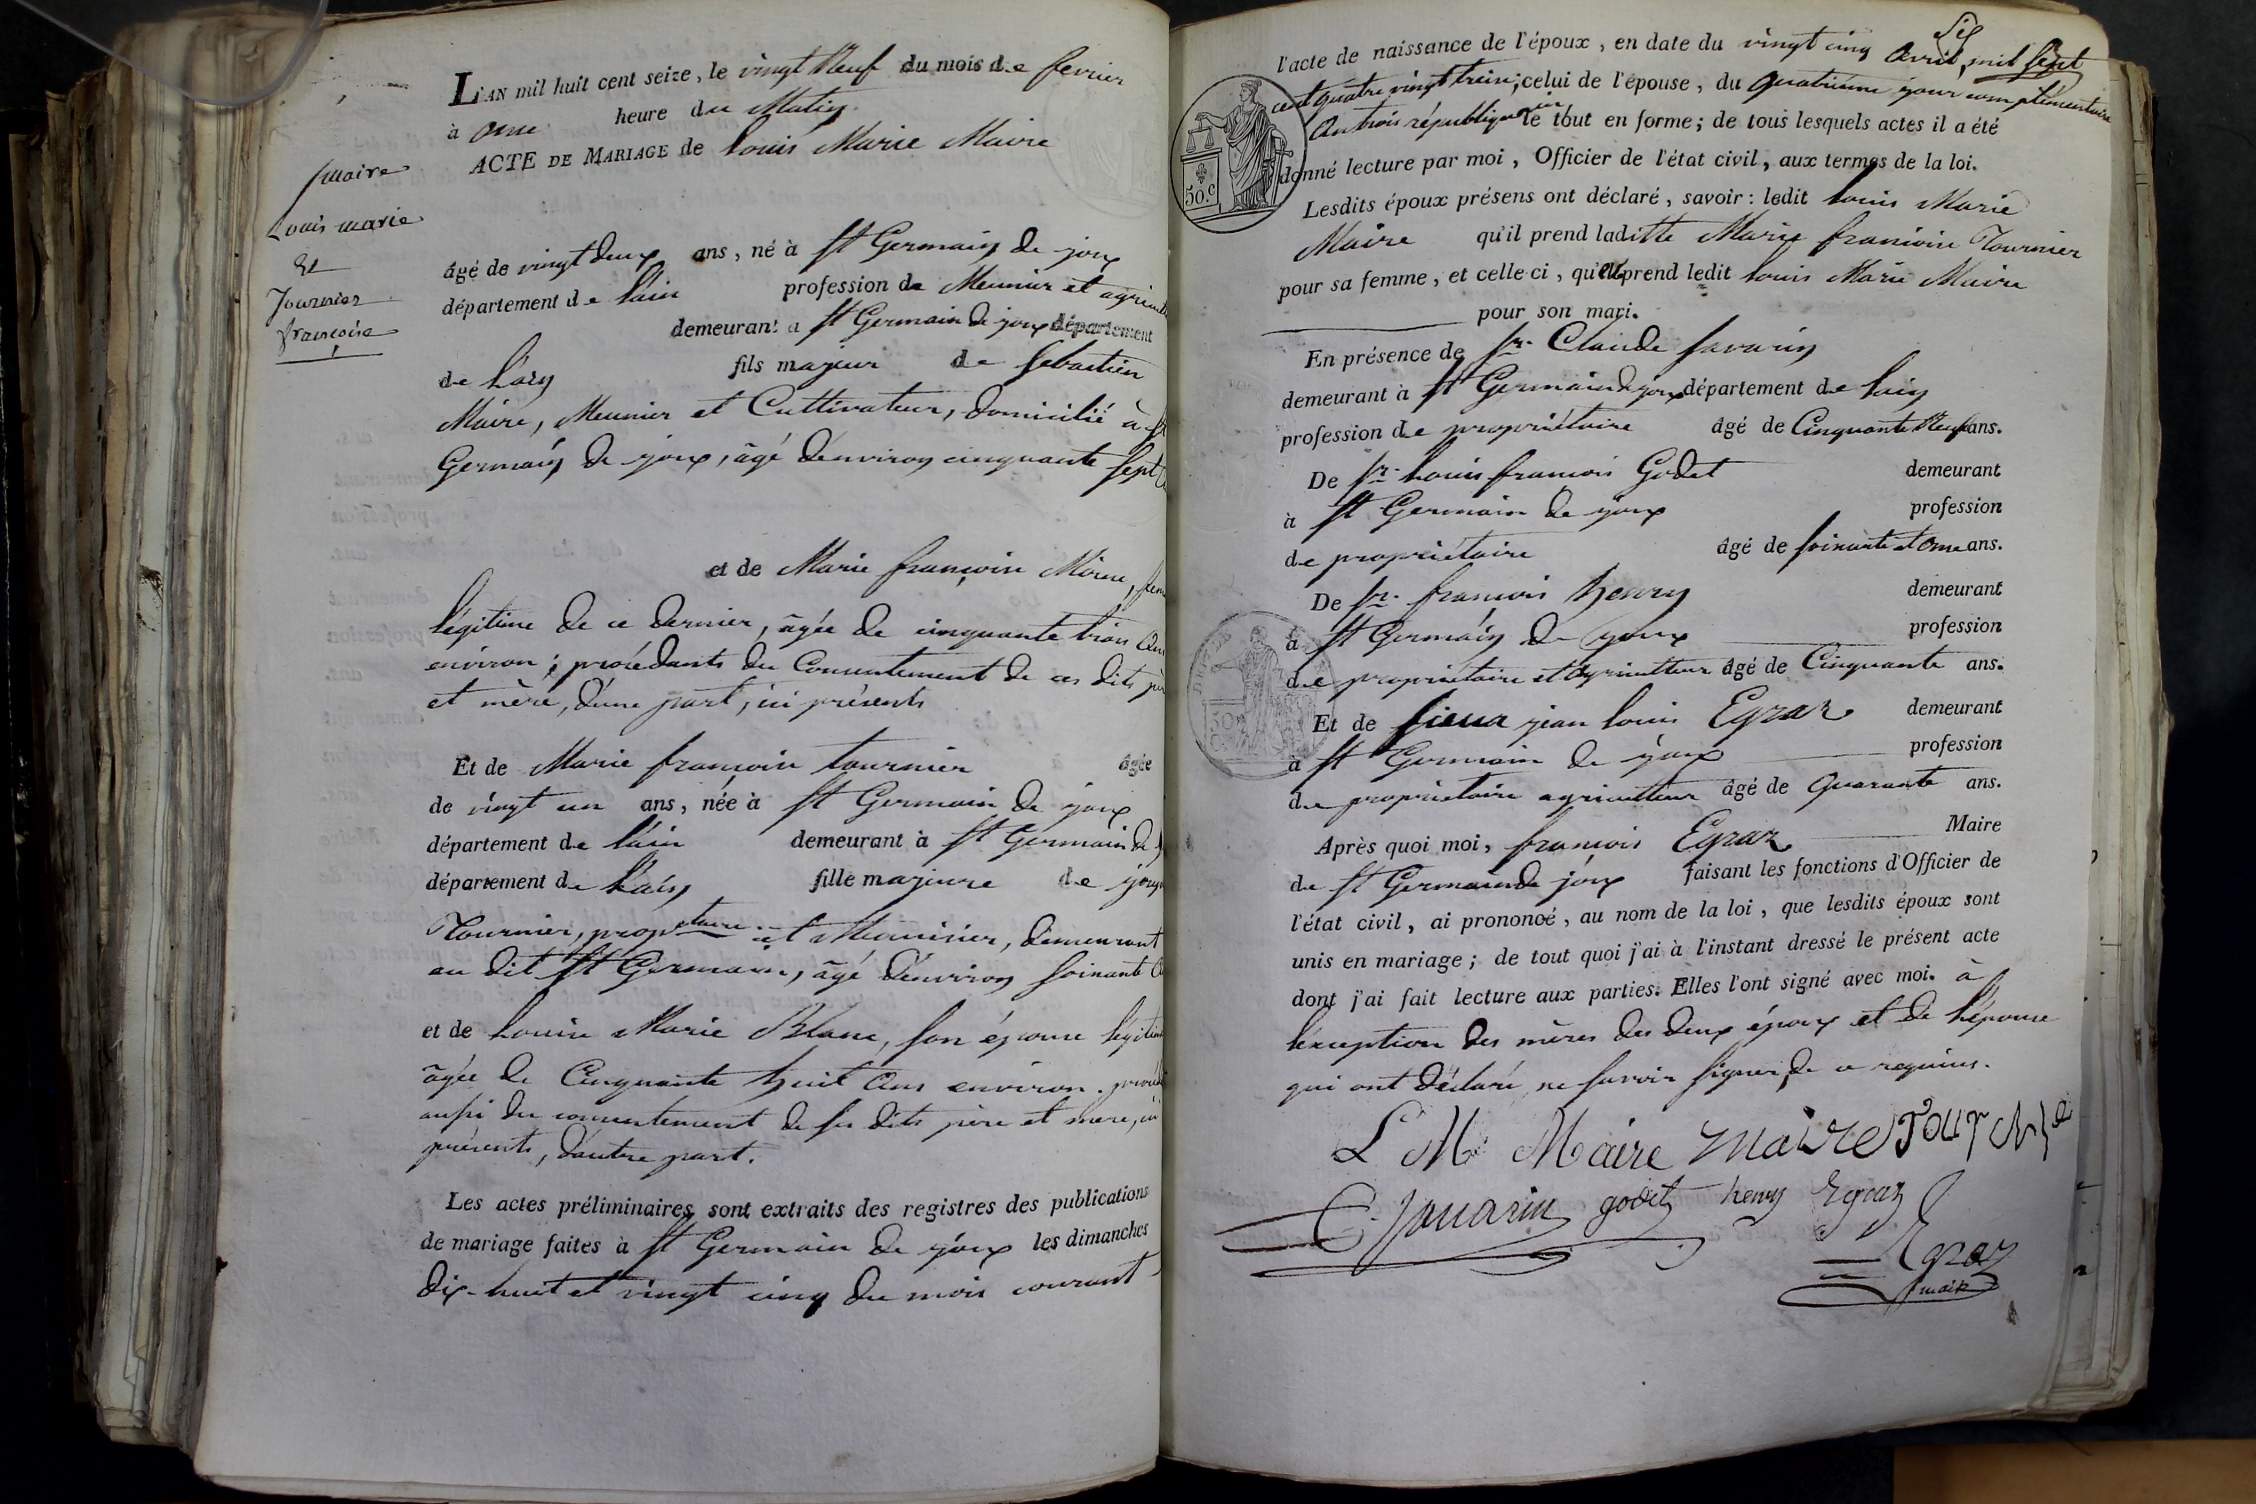 L'AN mil huit cent seize, le vingt Neuf du mois de fevrier
à onze heure du Matin
ACTE DE MARIAGE de louis Marie Maire
maire
Louis marie
Et
Tournier
françoise
âgé de vingt deux ans, né à St Germain de joux
département de l'ain profession de Meunier et
demeurant a St Germain de joux département
de l'ain fils majeur de sebastien
Maire, Meunier et Cultivateur, domicilié à St
Germain de joux, âgé d'environ cinquante sept
et de Marie françoise
légitime de ce dernier, âgée de cinquante trois
environ; procédants du Consentement de ces dits
et mère, d'une part, ici présents
Et de Marie françoise tournier âgée
de vingt un ans, née à St Germain de joux
département de l'ain demeurant à St Germain de
département de l'ain fille majeure de
Tournier, proptaire et Menuisier, demeurant
au dit St Germain, âgé d'environ soixante
et de louise Marie Blanc, son épouse
âgée de Cinquante huit ans environ.
aussi du consentement de ses dits père et mere,
présents, d'autre part.
Les actes préliminaires sont extraits des registres des publications
de mariage faites à St Germain de joux les dimanches
dix-huit et vingt cinq du mois courant
l'acte de naissance de l'époux, en date du vingt cinq avril, mil sept
cent quatre vingt treize; celui de l'épouse, du quatrième jour complémentaire
an trois républiquein le tout en forme; de tous lesquels actes il a été
50.c
donné lecture par moi, Officier de l'état civil, aux termes de la loi.
Lesdits époux présens ont déclaré, savoir: ledit louis Marie
Maire qu'il prend laditte Marie françoise Tournier
pour sa femme, et celle ci, qu'elle prend ledit louis Marie Maire
pour son mari.
En présence de sr. Claude savarin
demeurant à St Germain de joux département de l'ain
profession de propriétaire âgé de Cinquante Neuf ans.
De sr. louis francois Godet demeurant
à St Germain de joux profession
de propriétaire âgé de soixante et onze ans.
De sr. francois henry demeurant
à St Germain de joux profession
de propriétaire et agriculteur âgé de Cinquante ans.
Et de sieur jean louis Egraz demeurant
à St Germain de joux profession
de proprietaire agriculteur âgé de quarante ans.
Après quoi moi, francois Egraz Maire
de St Germain de joux faisant les fonctions d'Officier de
l'état civil, ai prononcé, au nom de la loi, que lesdits époux sont
unis en mariage; de tout quoi j'ai à l'instant dressé le présent acte
dont j'ai fait lecture aux parties. Elles l'ont signé avec moi. à
l'exception des mères des deux époux et de l'épouse
qui ont déclaré ne savoir signer, de ce requises.
L M Maire maire
godet henry Egraz
Egraz
maire